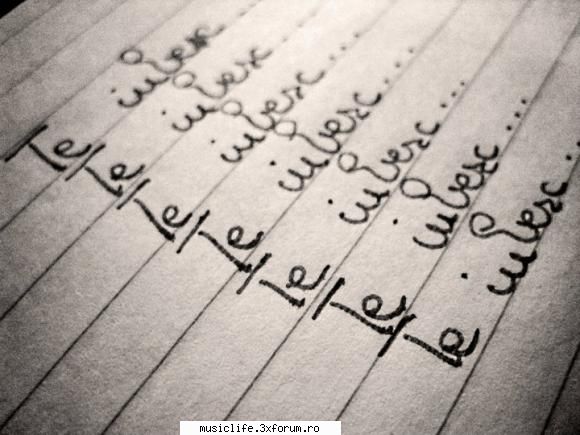 Te iubesc ...
Te iubesc ...
Te iubesc ...
Te iubesc ...
Te iubesc ...
Te iubesc ...
Te iubesc ...
musiclife.3xforum.ro